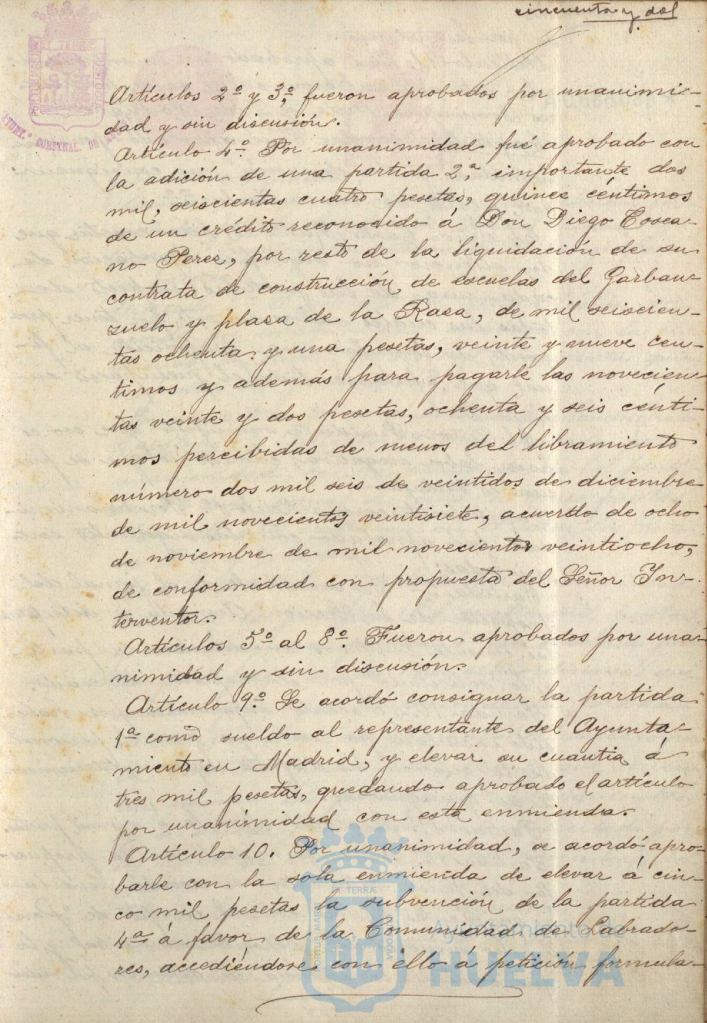 cincuenta y dos
Artículos 2º y 3º, fueron aprobados por unanimi-
dad y sin discusión.
Artículo 4º. Por unanimidad fué aprobado con
la adición de una partida 2ª, importante dos
mil, seiscientas cuatro pesetas, quince céntimos
de un crédito reconocido á Don Diego Tosca-
no Perez, por resto de la liquidación de su
contrata de construcción de escuelas del Garban-
zuelo y plasa de la Rasa, de mil seiscien-
tas ochenta y una pesetas, veinte y nueve cen-
timos y además para pagarle las novecien
tas veinte y dos pesetas, ochenta y seis cénti-
mos percibidas de menos del libramiento
número dos mil seis de veintidos de diciembre
de mil novecientos veintisiete, acuerdo de ocho
de noviembre de mil novecientos veintiocho,
de conformidad con propuesta del Señor In-
terventor.
Artículos 5º al 8º. Fueron aprobados por una-
nimidad y sin discusión.
Artículo 9º. Se acordó consignar la partida
1ª como sueldo al representante del Ayunta-
miento en Madrid, y elevar su cuantia á
tres mil pesetas, quedando aprobado el artículo
por unanimidad con esta enmienda.
Artículo 10. Por unanimidad, se acordó apro-
barle con la sola enmienda de elevar á cin-
co mil pesetas la subvención de la partida
4ª á favor de la Comunidad de Labrado-
res, accediéndose con ello á petición formula-
Ayuntamiento de
HUELVA